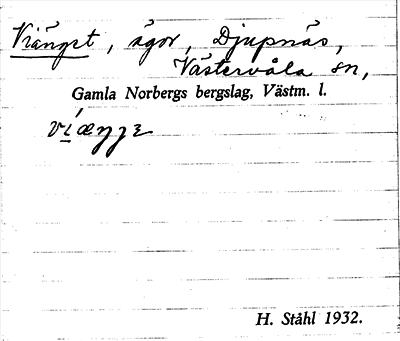 Viänget, ägor, Djupnäs,
Västervåla sn,
Gamla Norbergs bergslag, Västm. l.
H. Ståhl 1932.